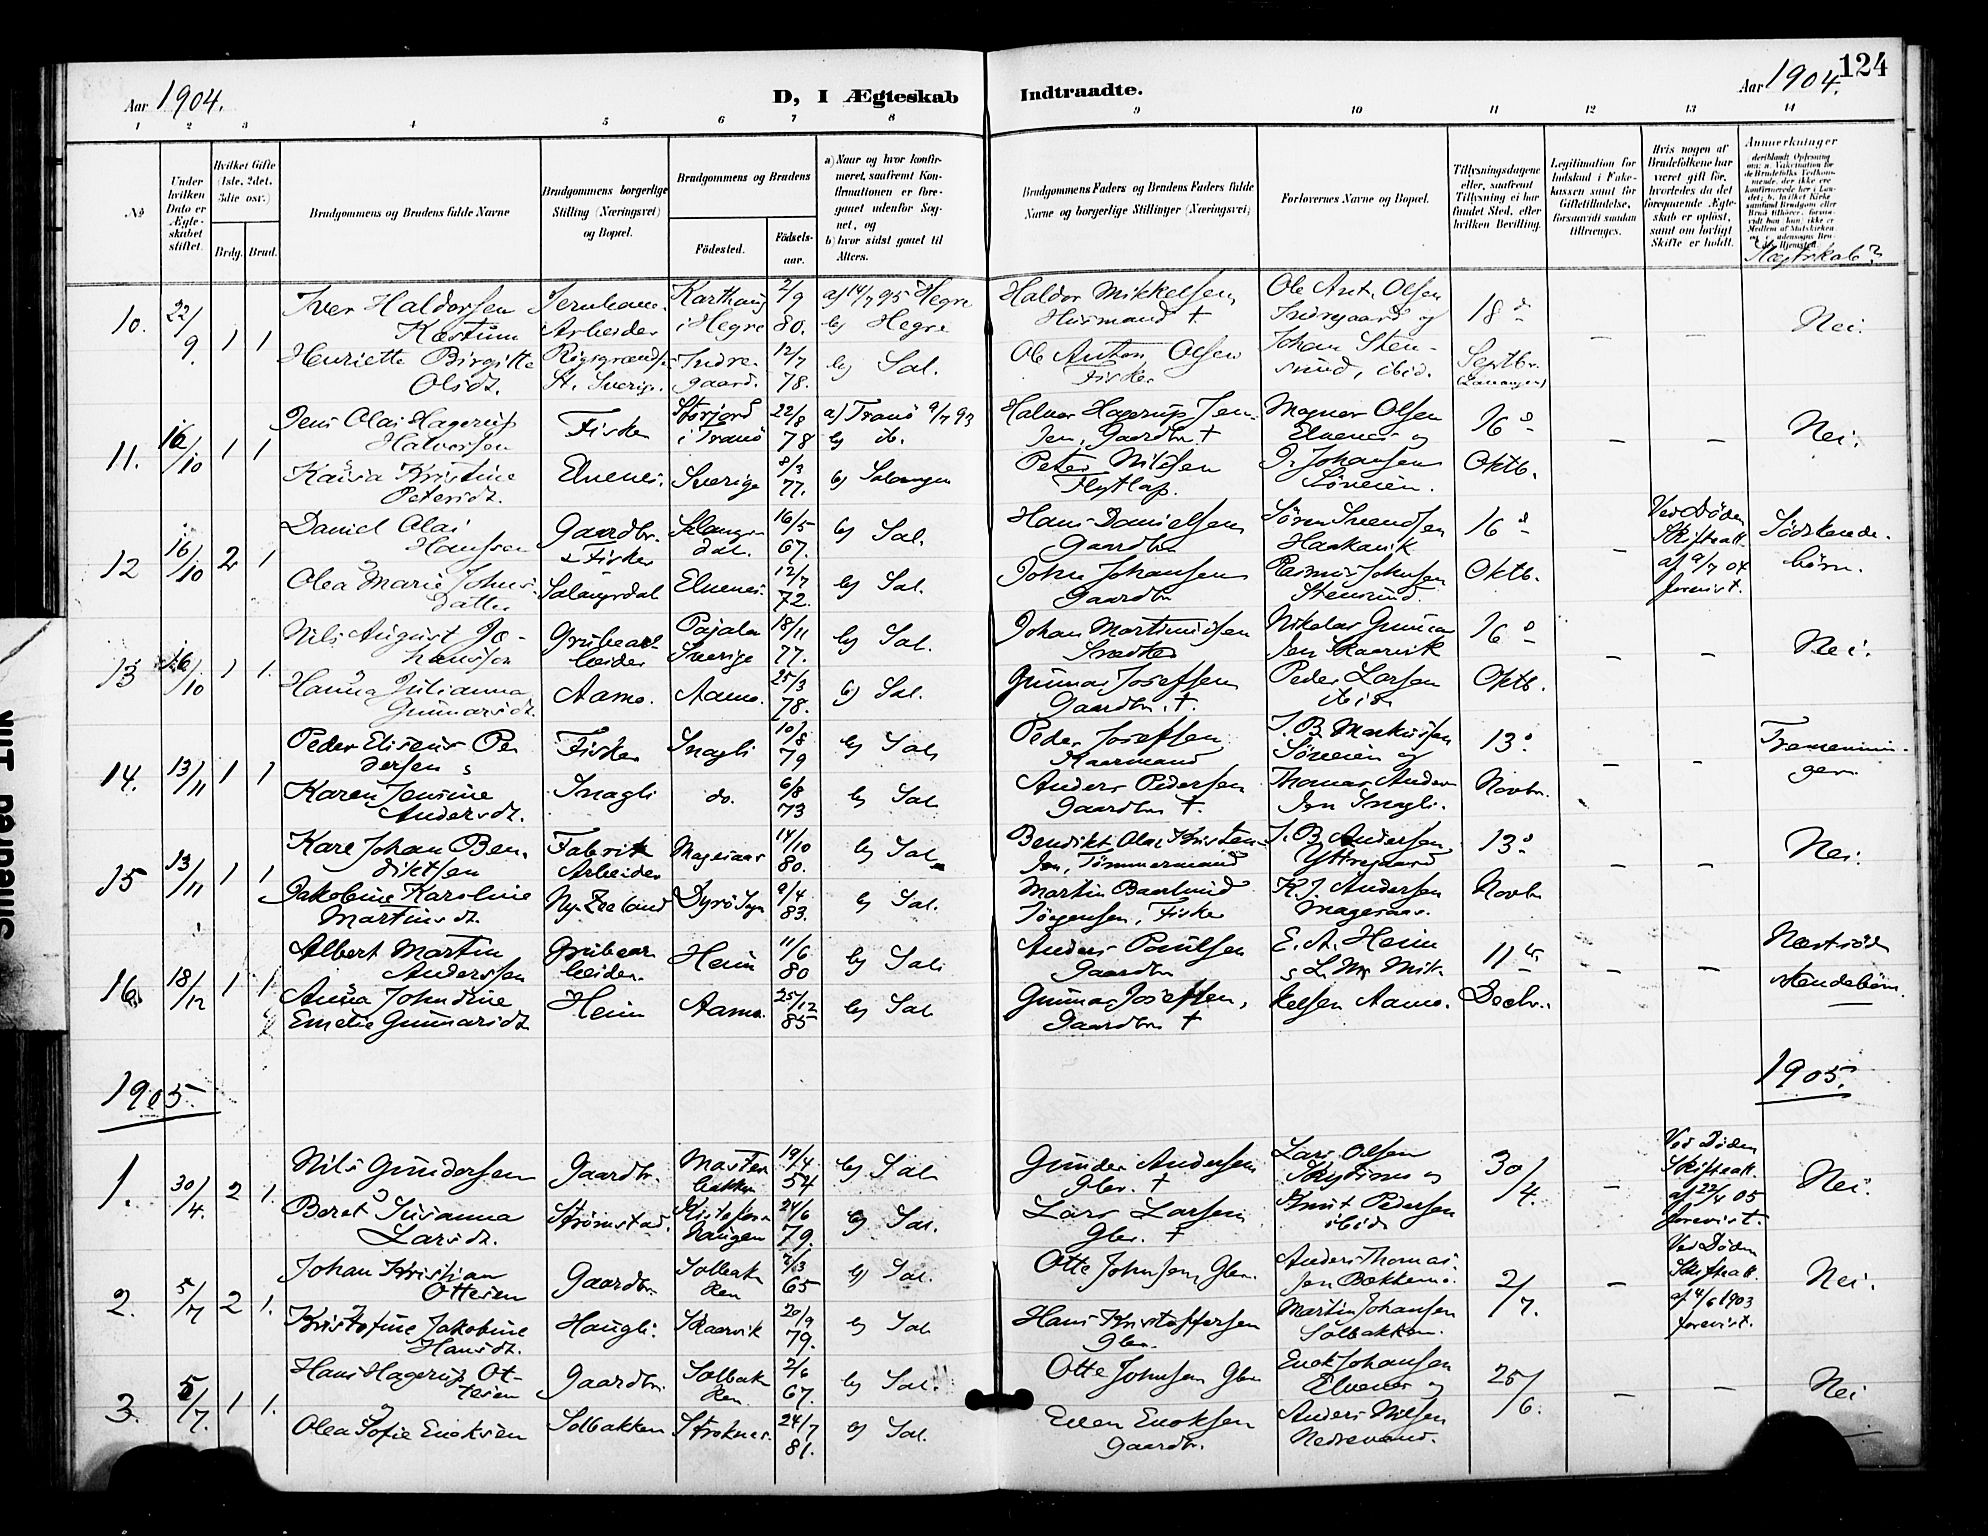 124
Aar 1904.
D, I Ægteskab
Indtraadte.
Aar 1904.
1 2 3 4 5 6 7 8 9 10 11 12 13 14
No
Under hvilken Dato er Ægteskabet stiftet.
Hvilket Gifte (1ste, 2det, 3die osv.)
Brdg. Brud.
Brudgommens og Brudens fulde Navne
Brudgommens borgerlige Stilling (Næringsvei) og Bopæl.
Brudgommens og Brudens
Fødested.
Fødselsaar.
a) Naar og hvor konfirmeret, saafremt Konfirmationen er foregaaet udenfor Sognet, og
b) hvor sidst gaaet til Alters.
Brudgommens Faders og Brudens Faders fulde Navne og borgerlige Stillinger (Næringsvei)
Forlovernes Navne og Bopæl.
Tillysningsdagene eller, saafremt Tillysning ei har fundet Sted, efter hvilken Bevilling.
Legitimation for Indskud i Enkekassen samt for Giftetilladelse, forsaavidt saadan tiltrænges.
Hvis nogen af Brudefolkene har været gift før, hvorledes da det foregaaende Ægteskab er opløst, samt om lovligt Skifte er holdt.
Anmerkninger
Slægtskab?
10. 22/9 1 1
Iver Haldorsen
Kastum
Jernbane-
Arbeider
i Hegre
2/9 80.
a) 14/7 95 Hegre
b) Hegre
Haldor Mikkelsen
Husmand †
Ole Ant. Olsen
Indregaard og
18d
Septbr.
Nei.
Henriette Birgitte
Olsdt.
Rigsgrændsen
St. Sverige.
Indre-
gaard.
12/7 78.
b) Sal.
Ole Anton Olsen
Fisker
Johan Sten-
sund, ibid.
11. 16/10 1 1
Jens Olai Hagerup
Halvorsen
Fisker
Storjord
i Tranø
22/8 78
a) Tranø 9/7 93
b) ib.
Halvor Hagerup Jen-
sen, Gaardbr. †
Magnor Olsen
Elvenes og
16d
Oktb.
Nei.
Kaisa Kristine
Petersdt.
Elvenes.
Sverige
8/3 77.
b) Salangen
Peter Nilsen
Flytlap.
J. Johansen
Søveien.
12 16/10 2 1
Daniel Olai
Hanssen
Gaardbr.
& Fisker
Salangs-
dal.
16/5 67.
b) Sal.
Hans Danielsen
Gaardbr
Søren Svendsen
Haakavik
16d
Oktb.
Ved Døden
Skifteatt.
af 9/7 04
forevist.
Södskende-
børn.
Olea Marie Johns-
datter
Salangsdal
Elvenes.
12/7 72.
b) Sal.
John Johansen
Gaardbr
Rasmus Johnsen
Stensund.
13 16/10 1 1.
Nils August Jo-
hansson
Grubear-
beider
Pajala
Sverige
18/11 77.
b) Sal.
Johan Martinussen
Snedker
Nikolai Gunnar-
sen Skaarvik
16d
Oktb.
Nei.
Hanna Julianna
Gunnarsdt.
Aamo.
Aamo.
25/3 78.
b) Sal.
Gunnar Josefsen
Gaardbr. †.
Peder Larsen
ibid.
14. 13/11 1 1
Peder Eliseus Pe-
dersen
Fisker
Snagli
10/8 79
b) Sal.
Peder Josefsen
Kaarmand
J. B. Markussen
Søveien og
13d
Novbr.
Tremennin-
ger.
Karen Jensine
Andersdt.
Snagli
do.
6/8 73
b) Sal
Anders Pedersen
Gaardbr †.
Thomas Ander-
sen Snagli.
15 13/11 1 1
Karl Johan Ben-
diktsen
Fabrik
Arbeider
Magesaas
14/10 80.
b) Sal.
Bendikt Olai Kristen-
sen, Tømmermand
J. B. Andersen
Yttregaard
13d
Novbr
Nei.
Jakobine Karoline
Martinsdt.
Ny Zeeland
Dyrø Sogn
9/4 83.
b) Sal.
Martin Baarlund
Jørgensen, Fisker
K. J. Andersen
Magesaas.
16. 18/12 1 1
Albert Martin
Anderssen
Grubear-
beider.
Heim
11/6 80
b) Sal.
Anders Paulsen
Gaardbr
E. A. Heim
& L. M. Mik-
11te
Decbr.
Næstsöd-
skendebørn.
Anna Johndine
Emelie Gunnarsdt.
Heim
Aamo.
25/12 85
b) Sal
Gunnar Josefsen,
Gaardbr †
kelsen Aamo.
1905.
1905.
1. 30/4. 2 1.
Nils Gundersen
Gaardbr.
Masten-
bakken
19/4 54
b) Sal
Gunder Andersen
Gbr. †
Lars Olsen
og
30/4.
Ved Døden
Skifteatt.
af 22/4 05
forevist.
Nei.
Beret Susanna
Larsdt.
Strømstad.
Kristofer-
haugen
24/6 79.
b) Sal.
Lars Larsen
Gbr. †
Knut Pedersen
ibid.
2. 5/7 2 1.
Johan Kristian
Ottesen
Gaardbr.
Solbak-
ken
2/3 65
b) Sal.
Otte Johnsen Gbr.
Anders Thomas-
sen Bækkemo.
2/7.
Ved Døden
Skifteatt.
af 4/6 1903
forevist.
Nei.
Kristofine Jakobine
Hansdt.
Haugli.
Skaarvik
20/9 79.
b) Sal
Hans Kristoffersen
Gbr.
Martin Johansen
Solbakken.
3. 5/7. 1 1.
Hans Hagerup Ot-
tesen
Gaardbr.
Solbak-
ken
2/6 67.
b) Sal.
Otte Johnsen Gbr
Enok Johansen
Elvenes og
25/6.
Nei
Olea Sofie Enoksen
Solbakken
Stroknes.
24/7 81.
b) Sal.
Even Enoksen
Gaardbr.
Anders Nilsen
Nedrevand.